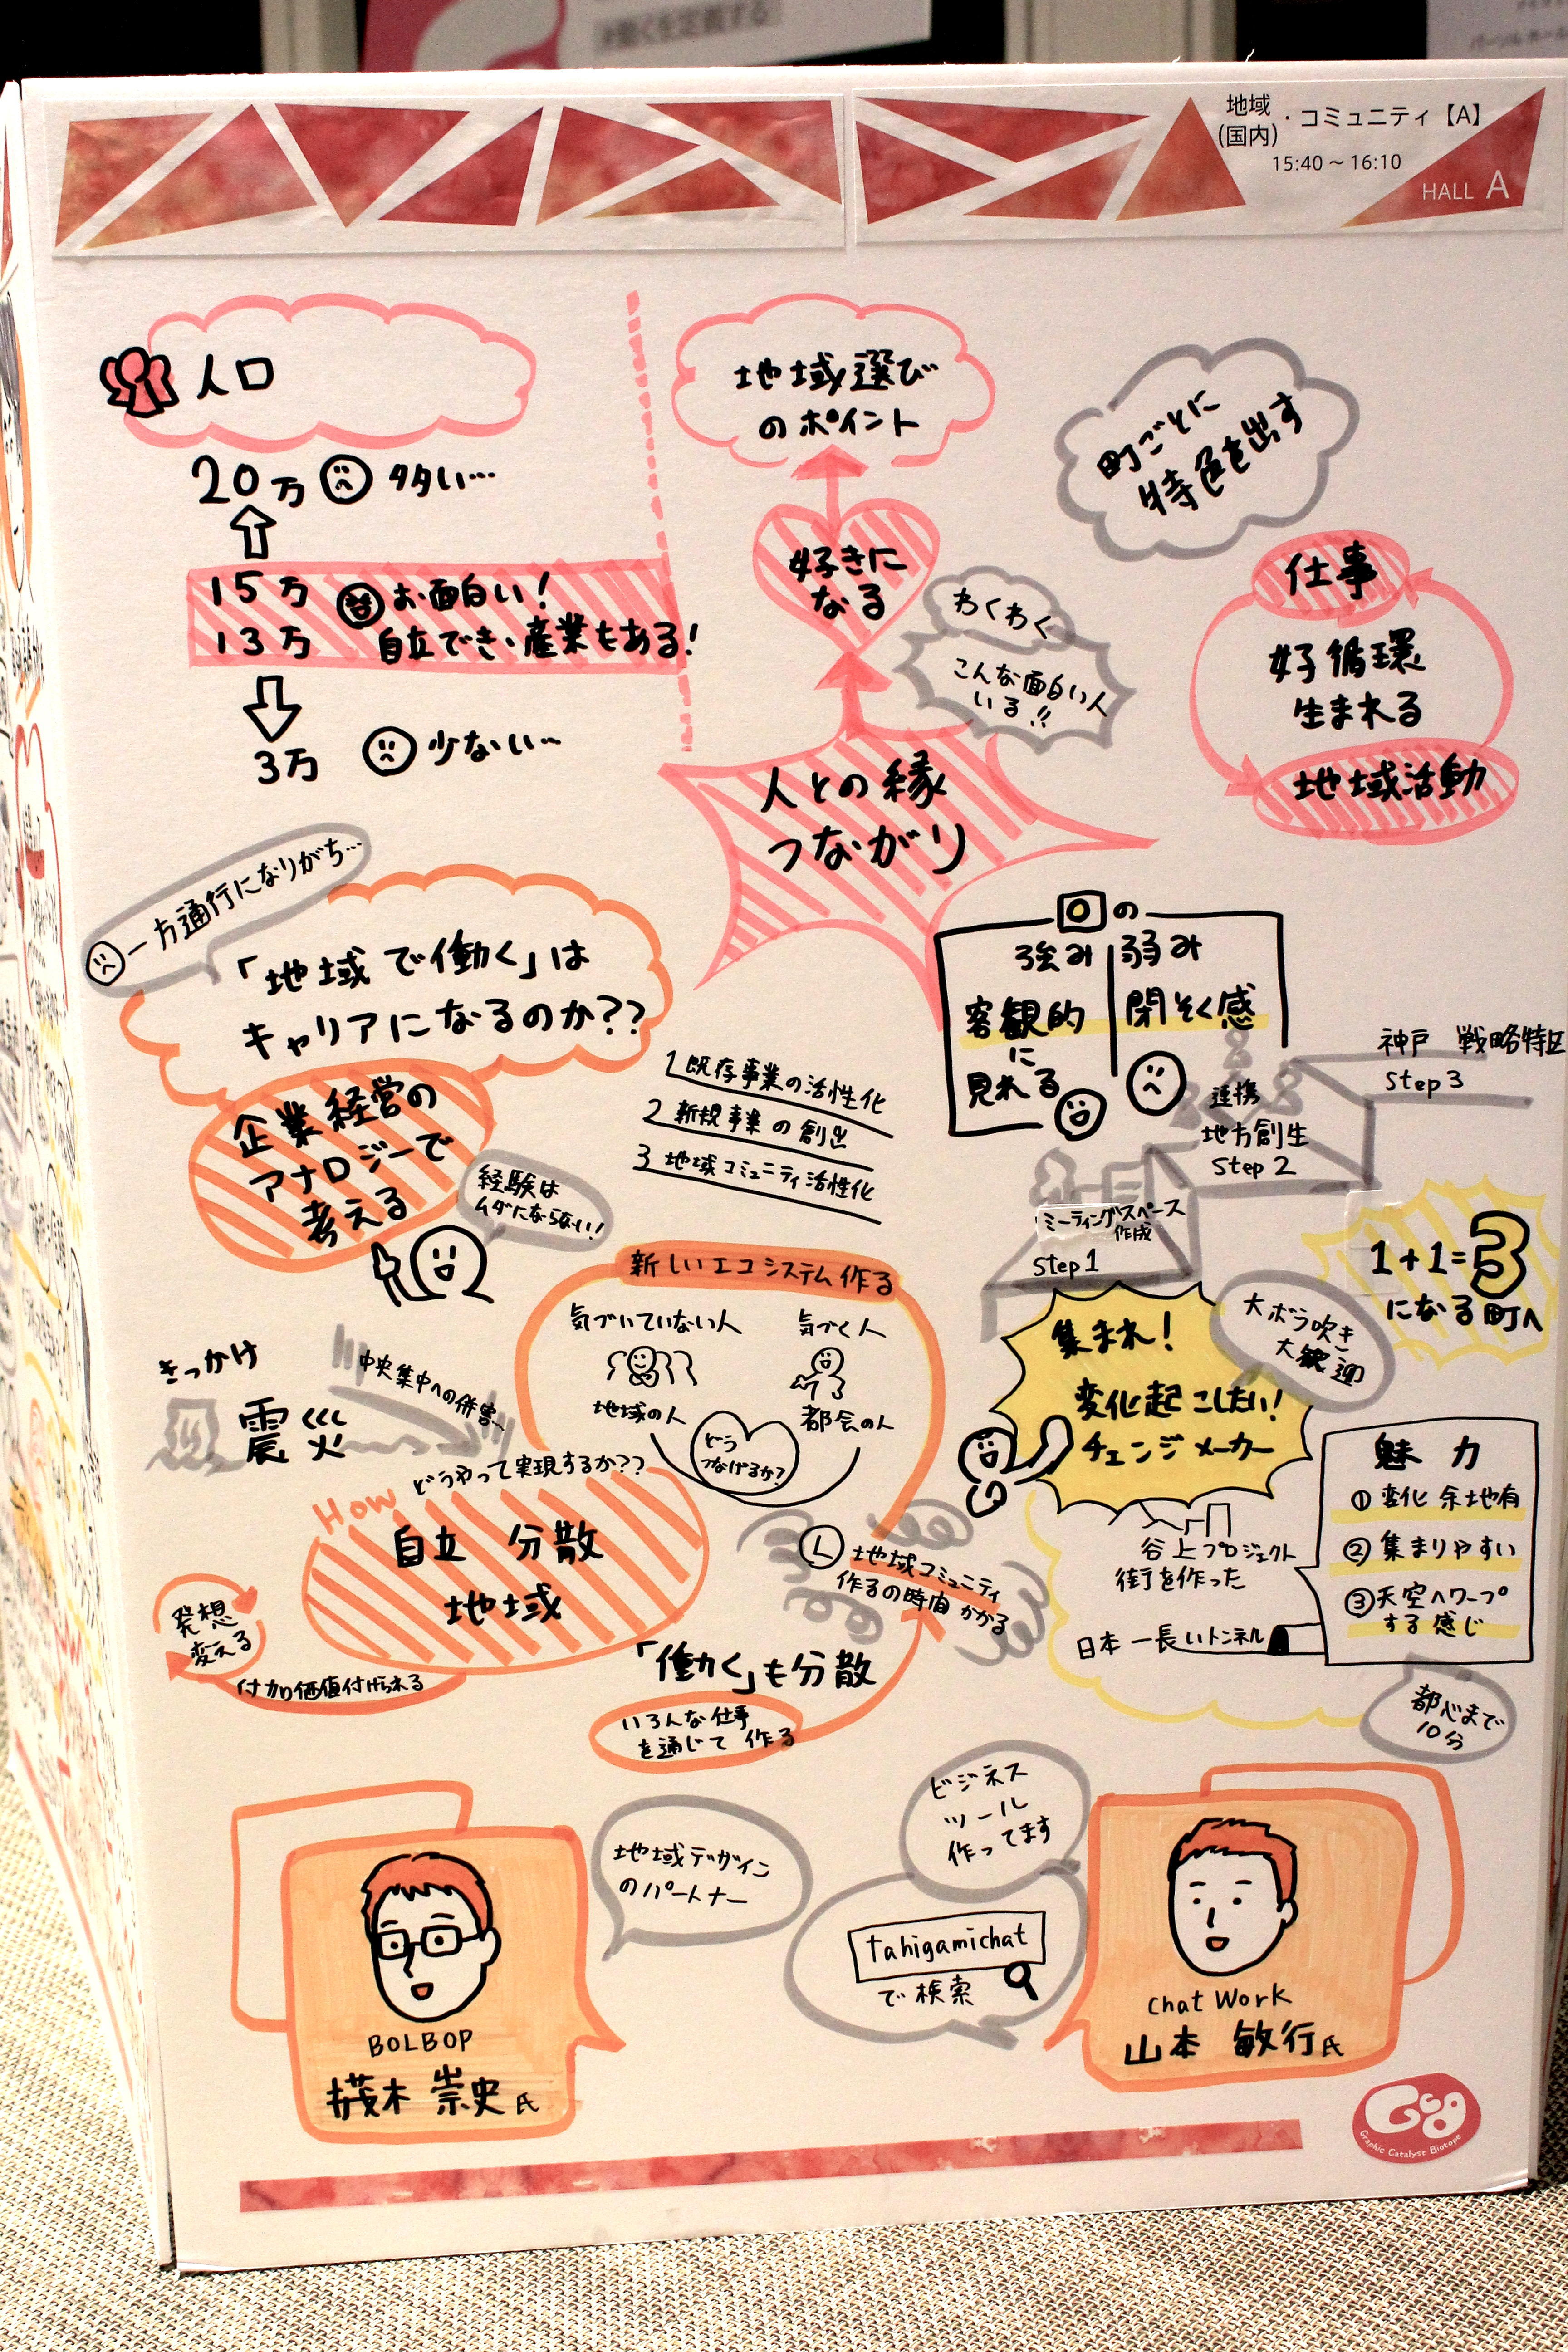 働くを定義する
地域
(国内)
・コミュニティ【A】
15:40～16:10
HALL A
人口
20万 多い…
15万 お面白い!
13万 自立でき・産業もある!
3万 少ない…
地域選び
のポイント
好きに
なる
わくわく
こんな面白い人
いる!!
人との縁
つながり
町ごとに
特色を出す
仕事
好循環
生まれる
地域活動
一方通行になりがち…
「地域で働く」は
キャリアになるのか??
企業経営の
アナロジーで
考える
経験は
ムダにならない!
1 既存事業の活性化
2 新規事業の創出
3 地域コミュニティ活性化
の
強み
客観的
に
見れる
弱み
閉そく感
神戸 戦略特区
Step3
連携
地方創生
Step2
ミーティングスペース
作成
Step1
1+1=3
になる町へ
新しいエコシステム作る
気づいていない人
地域の人
気づく人
都会の人
どう
つなげるか?
きっかけ
震災
中央集中への併害…
どうやって実現するか??
How
自立 分散
地域
発想
変える
付加価値付けられる
地域コミュニティ
作るの時間かかる
「働く」も分散
いろんな仕事
を通じて作る
集まれ!
変化起こしたい!
チェンジメーカー
大ボラ吹き
大歓迎
谷上プロジェクト
街を作った
日本一長いトンネル
魅力
①変化 余地有
②集まりやすい
③天空へワープ
する感じ
都心まで
10分
地域デザイン
のパートナー
ビジネス
ツール
作ってます
tanigamichat
で検索
BOLBOP
茂木 崇史氏
Chat Work
山本 敏行氏
GCB
Graphic Catalyst Biotope